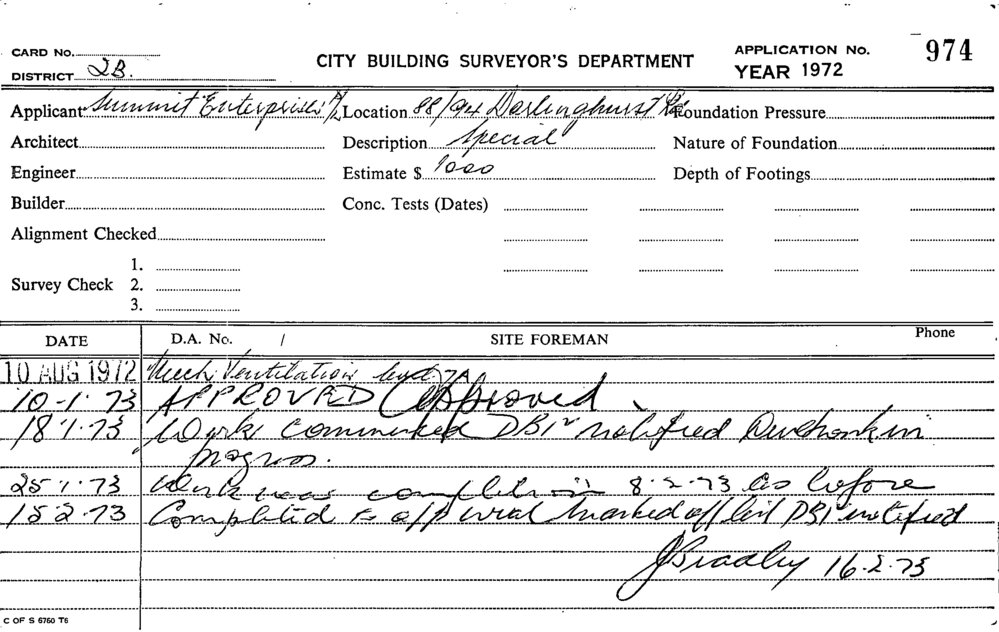 CARD No.
DISTRICT 2B.
CITY BUILDING SURVEYOR'S DEPARTMENT
APPLICATION No. 974
YEAR 1972
Applicant Summit Enterprises P/L Location 88/94 Darlinghurst Rd Foundation Pressure
Architect Description Special Nature of Foundation
Engineer Estimate $ 1000 Depth of Footings
Builder Conc. Tests (Dates)
Alignment Checked
1.
Survey Check 2.
3.
DATE D.A. No. / SITE FOREMAN Phone
10 AUG 1972 Mech Ventilation
10-1-73 APPROVED Approved
18-1-73 Works commenced DBI notified in
progress.
25-1-73 Work was 8-2-73 as before
15-2-73 Completed to approval marked off DBI notified
J Bradley 16-2-73
C OF S 6760 T6